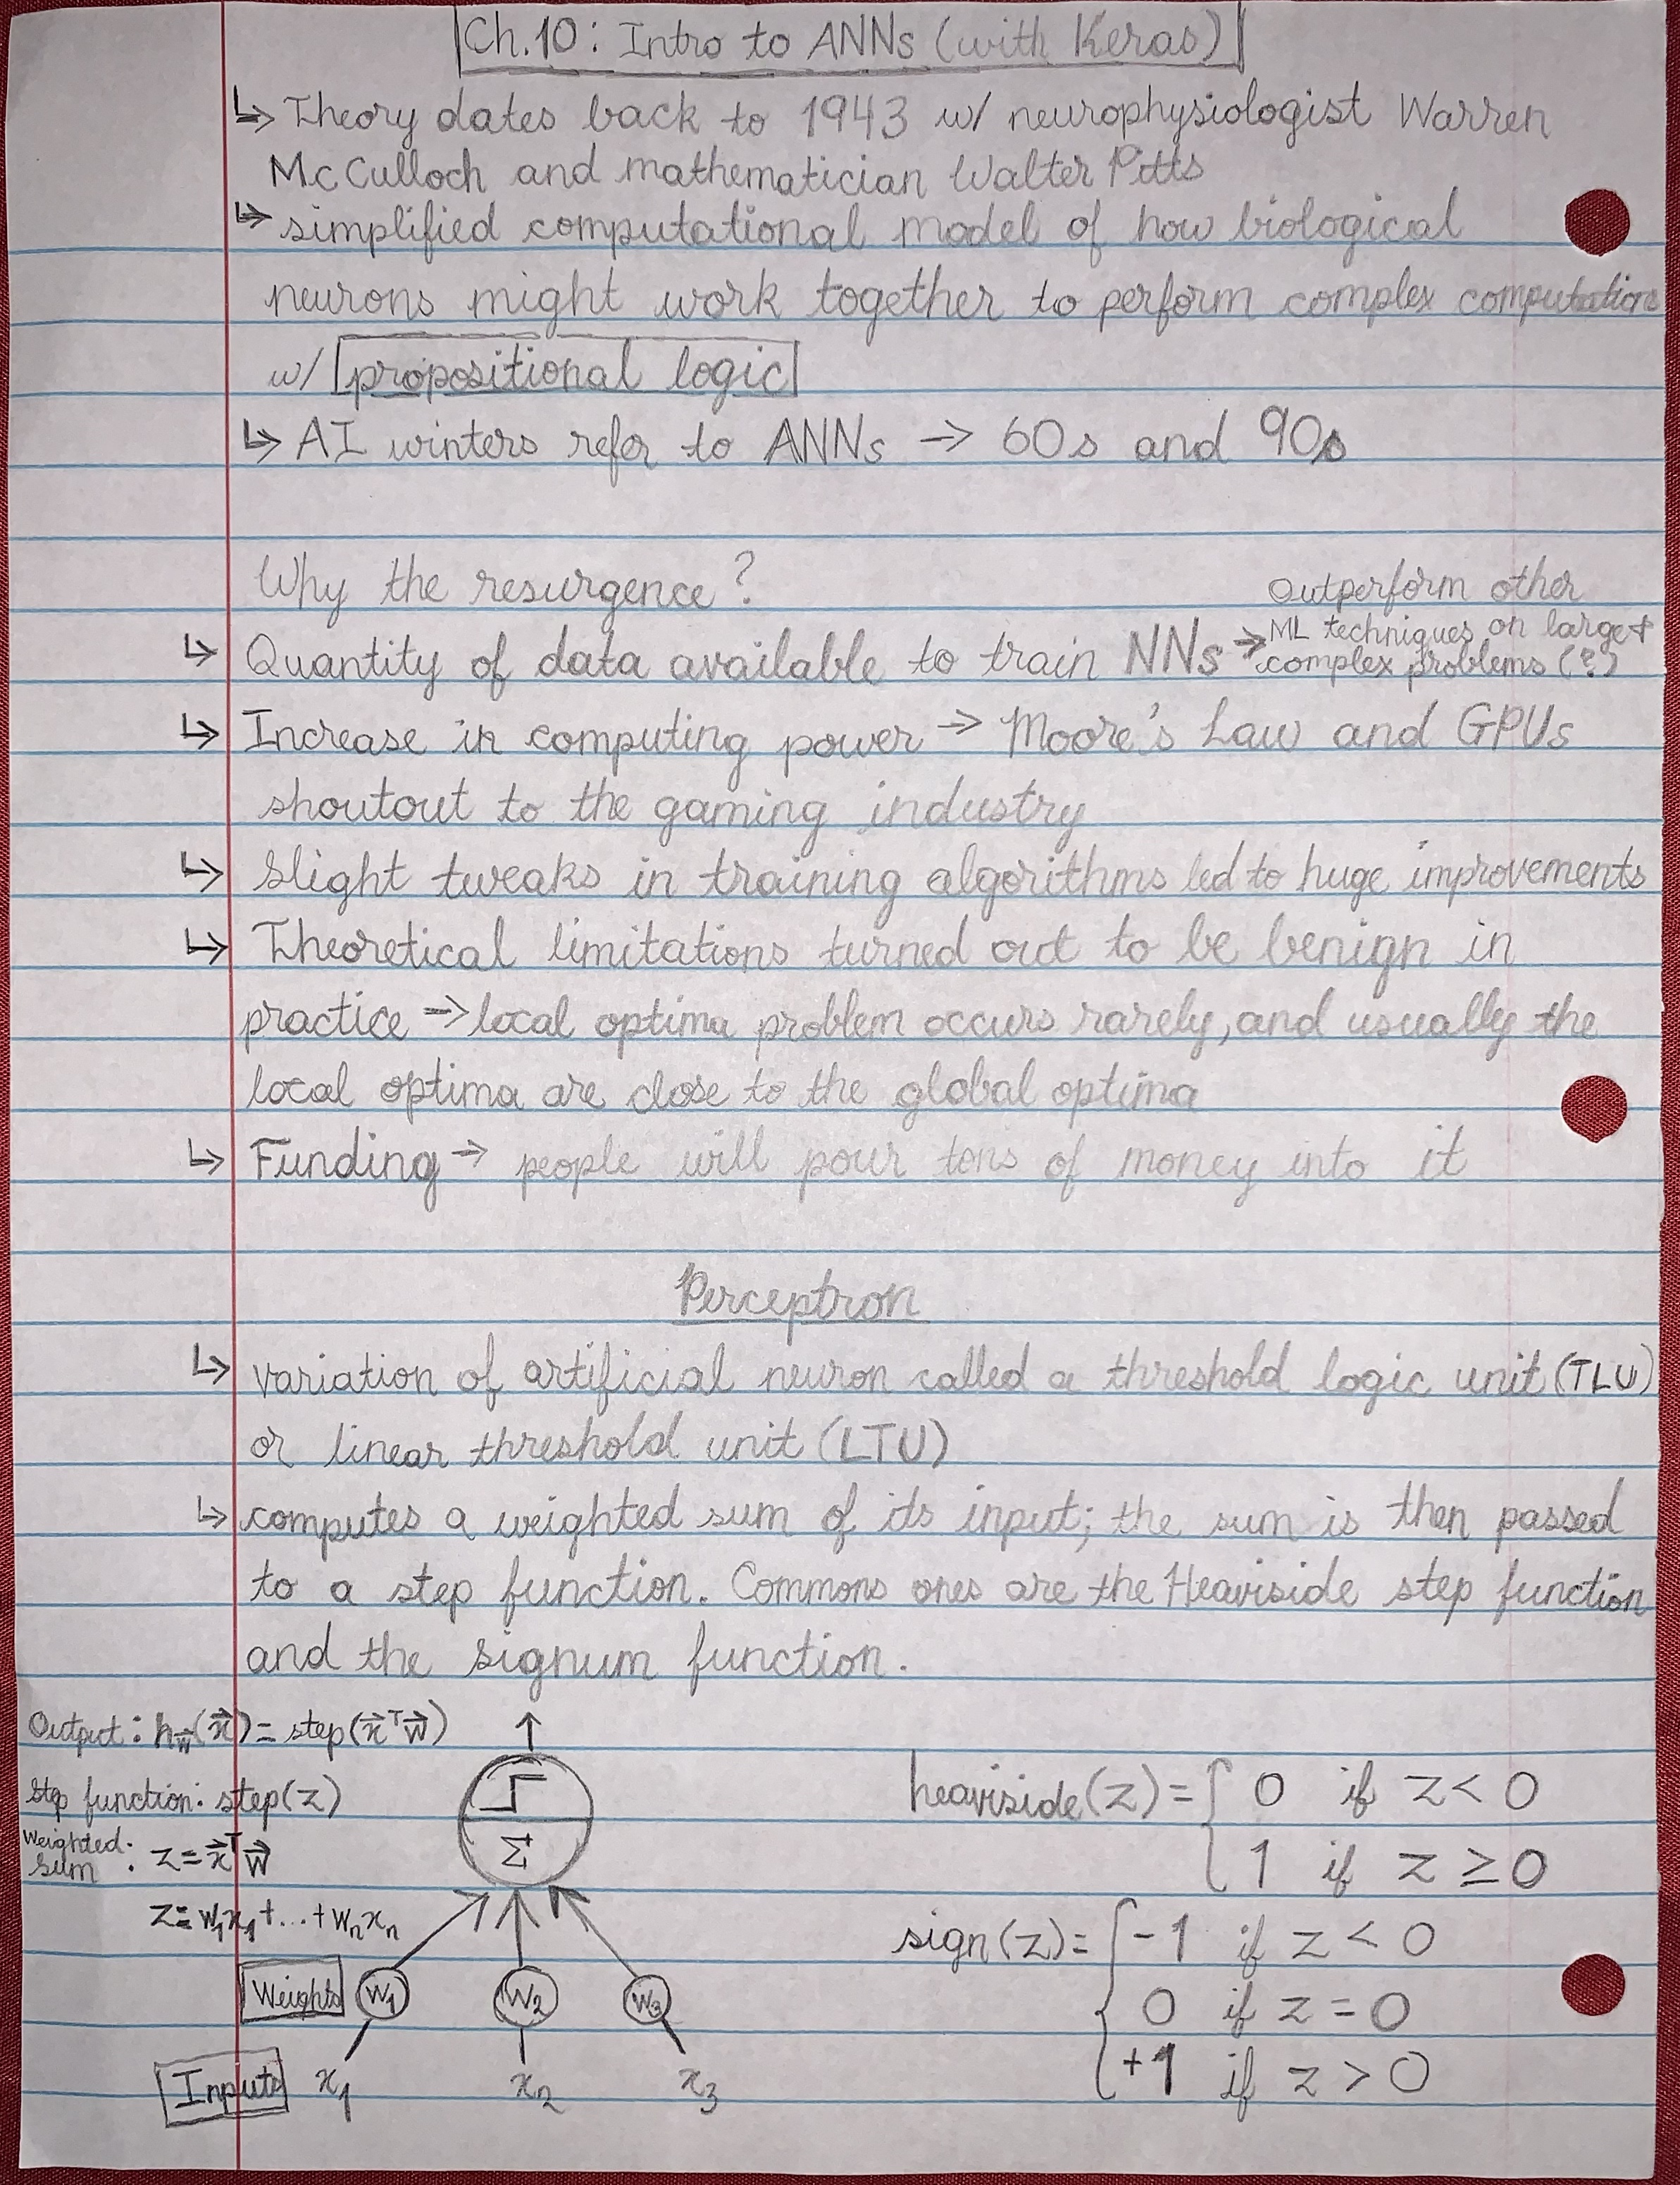 Ch.10: Intro to ANNs (with Keras)
↳ Theory dates back to 1943 w/ neurophysiologist Warren
McCulloch and mathematician Walter Pitts
↳ simplified computational model of how biological
neurons might work together to perform complex computations
w/ propositional logic
↳ AI winters refer to ANNs → 60s and 90s
Why the resurgence?
↳ Quantity of data available to train NNs → Outperform other
ML techniques on large +
complex problems (?)
↳ Increase in computing power → Moore's Law and GPUs
shoutout to the gaming industry
↳ Slight tweaks in training algorithms led to huge improvements
↳ Theoretical limitations turned out to be benign in
practice → local optima problem occurs rarely, and usually the
local optima are close to the global optima
↳ Funding → people will pour tons of money into it
Perceptron
↳ variation of artificial neuron called a threshold logic unit (TLU)
or linear threshold unit (LTU)
↳ computes a weighted sum of its input; the sum is then passed
to a step function. Commons ones are the Heaviside step function
and the signum function.
Output: h_w⃗(x⃗) = step(x⃗ᵀw⃗)
Step function: step(z)
Weighted sum: z = x⃗ᵀw⃗
z = w₁x₁ + ... + wₙxₙ
Σ
Weights w₁ w₂ w₃
Inputs x₁ x₂ x₃
heaviside(z) = { 0 if z < 0
1 if z ≥ 0
sign(z) = { -1 if z < 0
0 if z = 0
+1 if z > 0